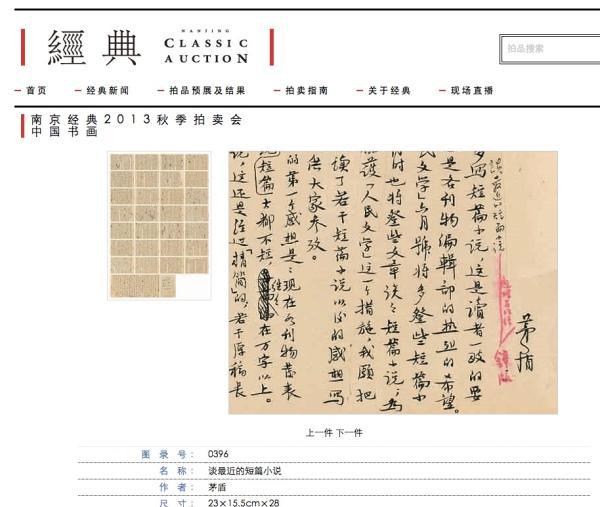 經典
NANJING
CLASSIC
AUCTION
拍品搜索
首页
经典新闻
拍品预展及结果
拍卖指南
关于经典
现场直播
南京经典2013秋季拍卖会
中国书画
谈最近的短篇小说
茅盾
多写短篇小说，这是读者一致的要
是各刊物编辑部的热烈的希望。
民文学》六月号将多登些短篇小
时也将登些文章谈谈短篇小说；为
护《人民文学》这一措施，我愿把
读了若干短篇小说以后的感想写
供大家参攷。
的第一个感想是：现在各刊物发表
短篇大都不短，往往在万字以上。
说，这还是经过“精简”的，若干原稿长
上一件 下一件
图录号： 0396
名称： 谈最近的短篇小说
作者： 茅盾
尺寸： 23×15.5cm×28